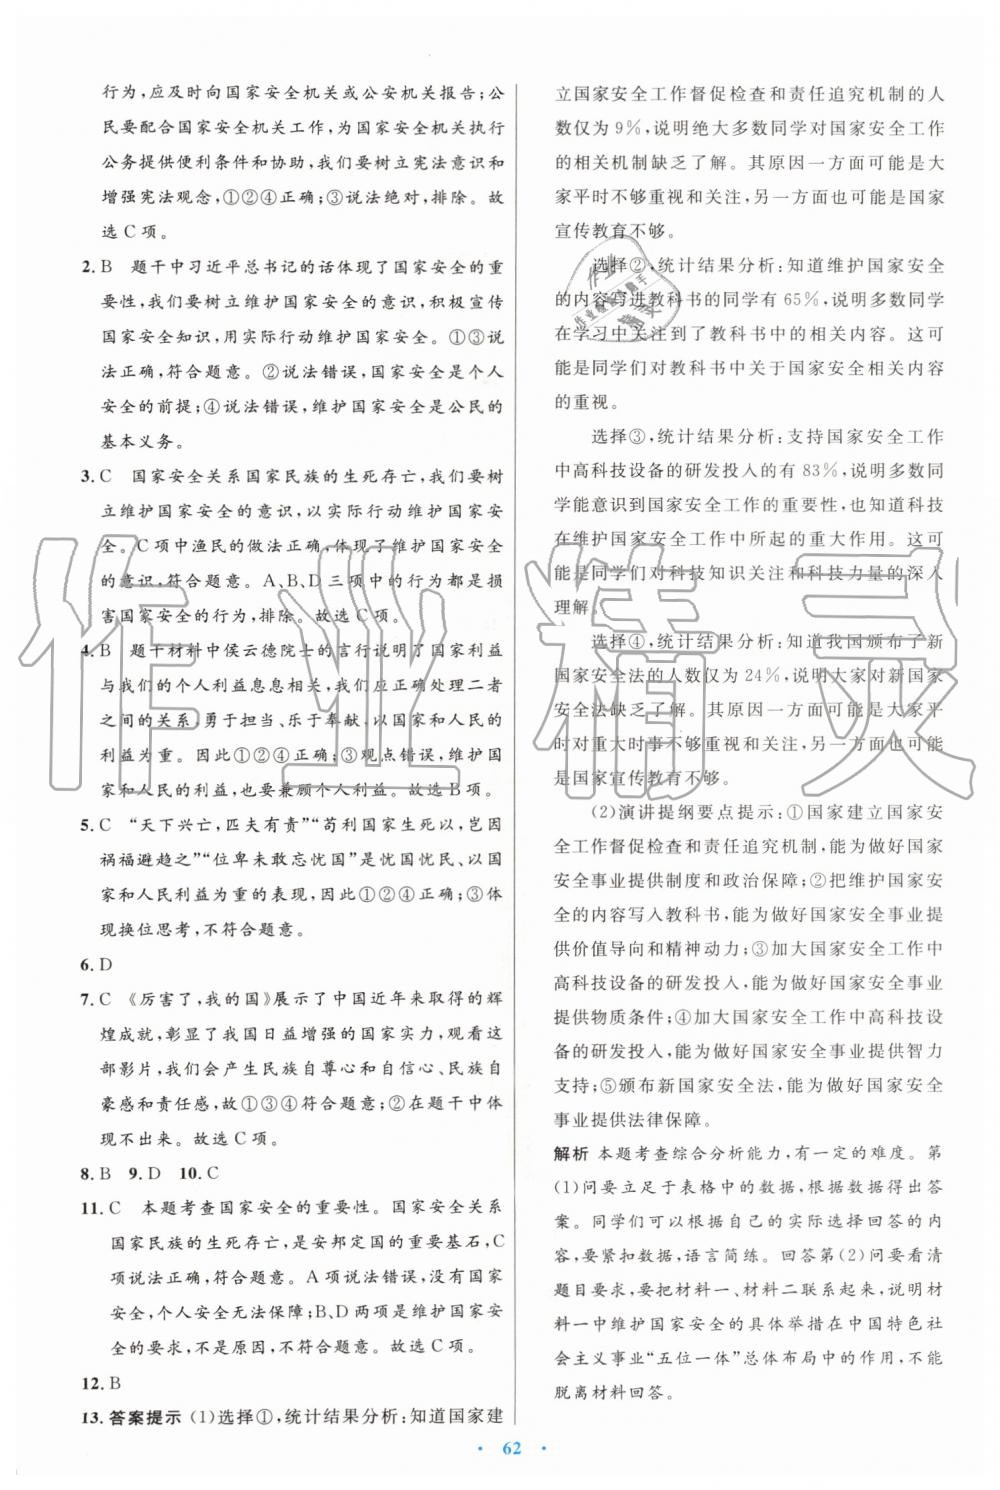 行为,应及时向国家安全机关或公安机关报告;公
民要配合国家安全机关工作,为国家安全机关执行
公务提供便利条件和协助,我们要树立宪法意识和
增强宪法观念,①②④正确;③说法绝对,排除。故
选C项。
2. B 题干中习近平总书记的话体现了国家安全的重
要性,我们要树立维护国家安全的意识,积极宣传
国家安全知识,用实际行动维护国家安全。①③说
法正确,符合题意。②说法错误,国家安全是个人
安全的前提;④说法错误,维护国家安全是公民的
基本义务。
3. C 国家安全关系国家民族的生死存亡,我们要树
立维护国家安全的意识,以实际行动维护国家安
全。C项中渔民的做法正确,体现了维护国家安全
的意识,符合题意。A、B、D三项中的行为都是损
害国家安全的行为,排除。故选C项。
4. B 题干材料中侯云德院士的言行说明了国家利益
与我们的个人利益息息相关,我们应正确处理二者
之间的关系,勇于担当、乐于奉献,以国家和人民的
利益为重。因此①②④正确;③观点错误,维护国
家和人民的利益,也要兼顾个人利益。故选B项。
5. C “天下兴亡,匹夫有责”“苟利国家生死以,岂因
祸福避趋之”“位卑未敢忘忧国”是忧国忧民、以国
家和人民利益为重的表现,因此①②④正确;③体
现换位思考,不符合题意。
6. D
7. C 《厉害了,我的国》展示了中国近年来取得的辉
煌成就,彰显了我国日益增强的国家实力,观看这
部影片,我们会产生民族自尊心和自信心、民族自
豪感和责任感,故①③④符合题意;②在题干中体
现不出来。故选C项。
8. B 9. D 10. C
11. C 本题考查国家安全的重要性。国家安全关系
国家民族的生死存亡,是安邦定国的重要基石,C
项说法正确,符合题意。A项说法错误,没有国家
安全,个人安全无法保障;B、D两项是维护国家安
全的要求,不是原因,不符合题意。故选C项。
12. B
13. 答案提示 (1)选择①,统计结果分析:知道国家建
立国家安全工作督促检查和责任追究机制的人
数仅为9%,说明绝大多数同学对国家安全工作
的相关机制缺乏了解。其原因一方面可能是大
家平时不够重视和关注,另一方面也可能是国家
宣传教育不够。
选择②,统计结果分析:知道维护国家安全
的内容写进教科书的同学有65%,说明多数同学
在学习中关注到了教科书中的相关内容。这可
能是同学们对教科书中关于国家安全相关内容
的重视。
选择③,统计结果分析:支持国家安全工作
中高科技设备的研发投入的有83%,说明多数同
学能意识到国家安全工作的重要性,也知道科技
在维护国家安全工作中所起的重大作用。这可
能是同学们对科技知识关注和科技力量的深入
理解。
选择④,统计结果分析:知道我国颁布了新
国家安全法的人数仅为24%,说明大家对新国家
安全法缺乏了解。其原因一方面可能是大家平
时对重大时事不够重视和关注,另一方面也可能
是国家宣传教育不够。
(2)演讲提纲要点提示:①国家建立国家安
全工作督促检查和责任追究机制,能为做好国家
安全事业提供制度和政治保障;②把维护国家安
全的内容写入教科书,能为做好国家安全事业提
供价值导向和精神动力;③加大国家安全工作中
高科技设备的研发投入,能为做好国家安全事业
提供物质条件;④加大国家安全工作中高科技设
备的研发投入,能为做好国家安全事业提供智力
支持;⑤颁布新国家安全法,能为做好国家安全
事业提供法律保障。
解析 本题考查综合分析能力,有一定的难度。第
(1)问要立足于表格中的数据,根据数据得出答
案。同学们可以根据自己的实际选择回答的内
容,要紧扣数据,语言简练。回答第(2)问要看清
题目要求,要把材料一、材料二联系起来,说明材
料一中维护国家安全的具体举措在中国特色社
会主义事业“五位一体”总体布局中的作用,不能
脱离材料回答。
62
作业精灵